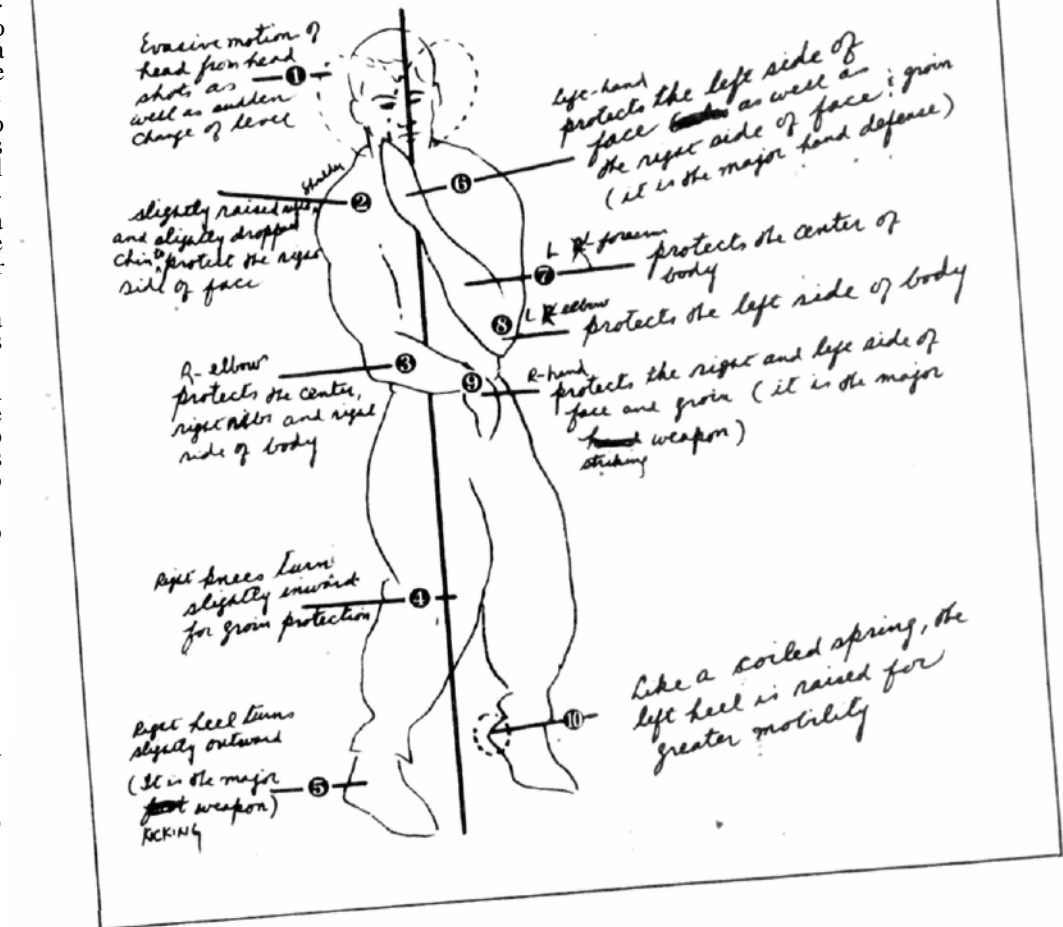 Evasive motion of
head from head
shots as
well as sudden
change of level
1
shoulder
2
slightly raised
and slightly dropped
chin to protect the right
side of face
R- elbow
protects the center,
right ribs and right
side of body
3
Right knees turn
slightly inward
for groin protection
4
Right heel turns
slightly outward
(It is the major
weapon)
KICKING
5
left-hand
protects the left side of
face as well as
the right side of face & groin
(it is the major hand defense)
6
L forearm
protects the center of
body
7
8
L elbow
protects the left side of body
9
R-hand
protects the right and left side of
face and groin (it is the major
hand weapon)
striking
10
Like a coiled spring, the
left heel is raised for
greater mobility